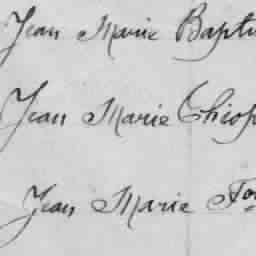 Jean Marie Bapti
Jean Marie Chiof
Jean Marie For